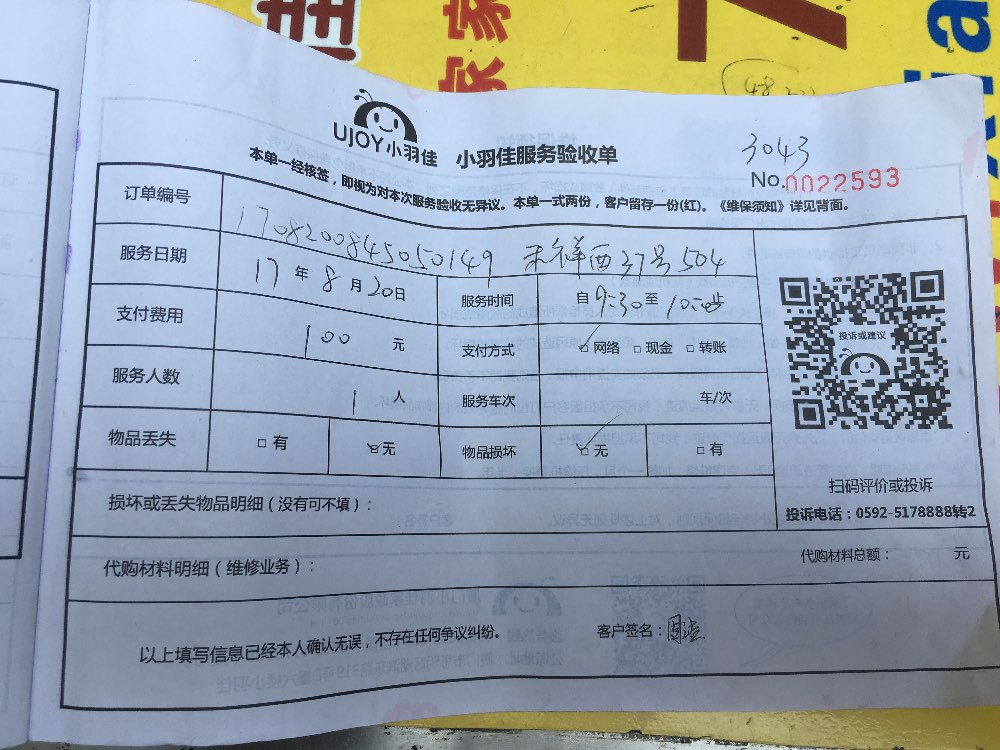 佳
家
家
UJOY 小羽佳
小羽佳服务验收单
3043
No.0022593
本单一经核签，即视为对本次服务验收无异议。本单一式两份，客户留存一份(红)。《维保须知》详见背面。
订单编号 1708200845050149 来祥西37号504
服务日期 17年8月20日 服务时间 自9:30至10:00止
支付费用 100元 支付方式 ☑网络 □现金 □转账
服务人数 1人 服务车次 车/次
物品丢失 □有 ☑无 物品损坏 ☑无 □有
投诉或建议
扫码评价或投诉
投诉电话：0592-5178888转2
损坏或丢失物品明细（没有可不填）：
代购材料明细（维修业务）： 代购材料总额： 元
以上填写信息已经本人确认无误，不存在任何争议纠纷。 客户签名：